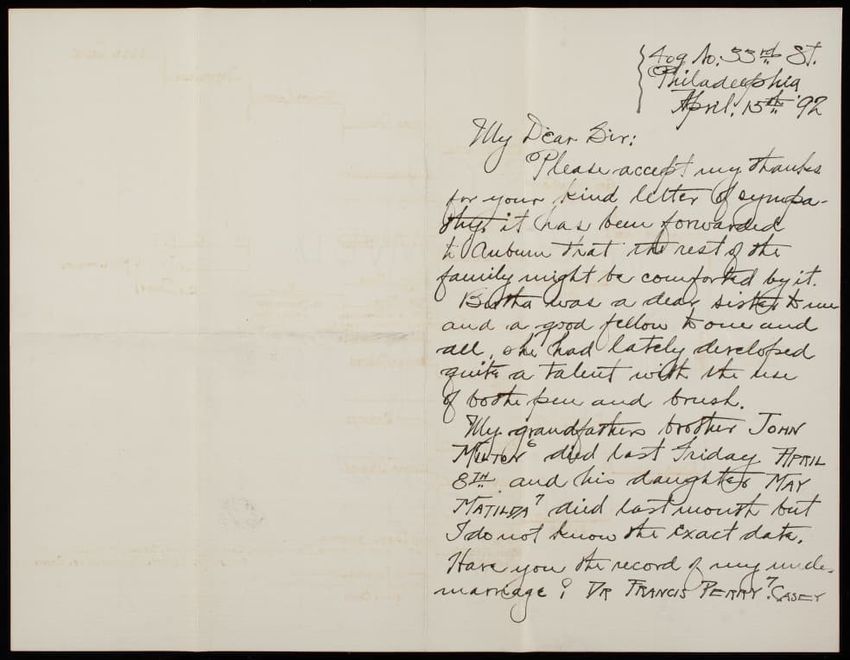 409 No. 33rd St.
Philadelphia
April. 15th '92
My Dear Sir:
Please accept my thanks
for your kind letter of sympa-
thy. it has been forwarded
to Auburn that the rest of the
family might be comforted by it.
Bertha was a dear sister to me
and a good fellow to one and
all, she had lately developed
quite a talent with the use
of bothe pen and brush.
My grandfathers brother JOHN
MILTON 6 died last Friday APRIL
8TH and his daughter MAY
MATILDA 7 died last month but
I do not know the exact date.
Have you the record of my uncle
marriage? DR FRANCIS PERRY 7. CASEY